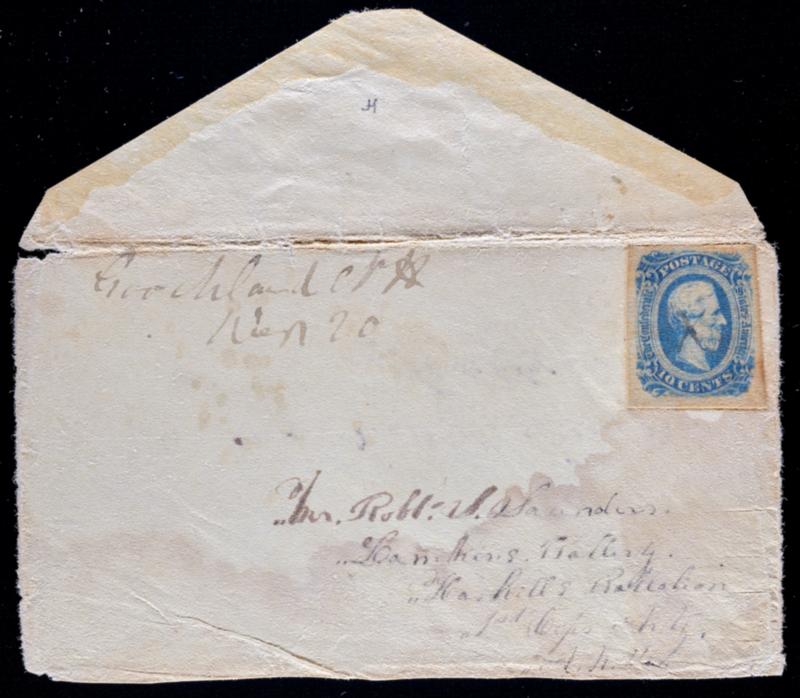 H
Goochland C H
20
POSTAGE
The Confederate States America
10 CENTS
Mr. Robt. S. Saunders.
Battery.
Haskell's Battalion
1st Corps